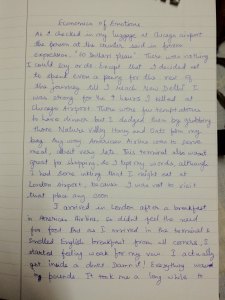 Economics of Emotions
As I checked in my luggage at Chicago airport
the person at the counter said in former
expression. "60 Dollars please". There was nothing
I could say or do except that I decided not
to spend even a penny for the rest of
the journey till I reach New Delhi. I
was strong for the 7 hours I killed at
Chicago Airport. There were few temptations
to have dinner but I dodged them by grabbing
those Nature Valley Honey and Oats from my
bag. Any way American Airline were to serve
meal, albeit very late. This terminal also wasn't
great for shopping. So I kept my words although
I had some inkling that I might eat at
London Airport, because I was not to visit
that place any soon.
I arrived London after a breakfast
in American Airlines, so didn't feel the need
for food. But as I arrived in the terminal &
smelled English breakfast from all corners, I
started feeling weak for my vow. I actually
got inside a diner. Damn it! Everything was in
pounds. It took me a long while to